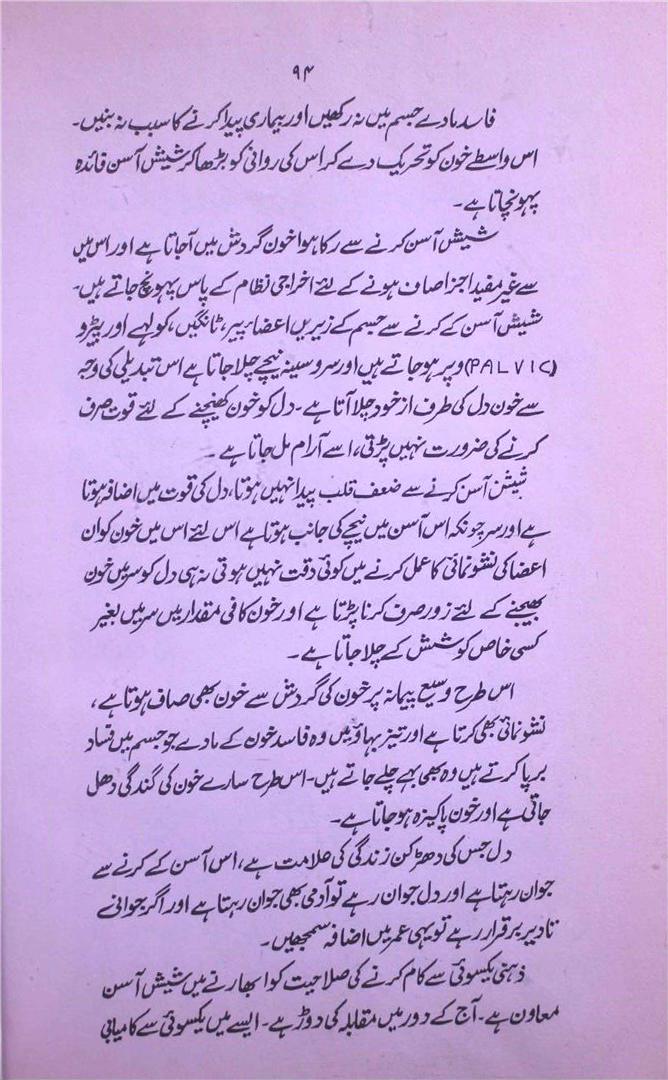 ۹۴
فاسد مادے جسم میں نہ رکھیں اور بیماری پیدا کرنے کا سبب نہ بنیں۔
اس واسطے خون کو تحریک دے کر اس کی روانی کو بڑھا کر شیش آسن فائدہ
پہونچاتا ہے۔
شیش آسن کرنے سے رکا ہوا خون گردش میں آجاتا ہے اور اس میں
سے غیر مفید اجزا صاف ہونے کے لئے اخراجی نظام کے پاس پہونچ جاتے ہیں۔
شیش آسن کے کرنے سے جسم کے زیریں اعضا، پیر، ٹانگیں، کولہے اور پیڑو
(PALVIC) وپر ہو جاتے ہیں اور سر و سینہ نیچے چلا جاتا ہے اس تبدیلی کی وجہ
سے خون دل کی طرف از خود چلا آتا ہے۔ دل کو خون کھینچنے کے لئے قوت صرف
کرنے کی ضرورت نہیں پڑتی، اسے آرام مل جاتا ہے۔
شیش آسن کرنے سے ضعف قلب پیدا نہیں ہوتا، دل کی قوت میں اضافہ ہوتا
ہے اور سر چونکہ اس آسن میں نیچے کی جانب ہوتا ہے اس لئے اس میں خون کو ان
اعضا کی نشونمائی کا عمل کرنے میں کوئی دقت نہیں ہوتی نہ ہی دل کو سر میں خون
بھیجنے کے لئے زور صرف کرنا پڑتا ہے اور خون کافی مقدار میں سر میں بغیر
کسی خاص کوشش کے چلا جاتا ہے۔
اس طرح وسیع پیمانہ پر خون کی گردش سے خون بھی صاف ہوتا ہے،
نشونمائی بھی کرتا ہے اور تیز بہاؤ میں وہ فاسد خون کے مادے جو جسم میں فساد
برپا کرتے ہیں وہ بھی بہے چلے جاتے ہیں۔ اس طرح سارے خون کی گندگی دھل
جاتی ہے اور خون پاکیزہ ہو جاتا ہے۔
دل جس کی دھڑکن زندگی کی علامت ہے، اس آسن کے کرنے سے
جوان رہتا ہے اور دل جوان رہے تو آدمی بھی جوان رہتا ہے اور اگر جوانے
تادیر برقرار رہے تو یہی عمر میں اضافہ سمجھیں۔
ذہنی یکسوئی سے کام کرنے کی صلاحیت کو ابھارنے میں شیش آسن
معاون ہے۔ آج کے دور میں مقابلہ کی دوڑ ہے۔ ایسے میں یکسوئی سے کامیابی